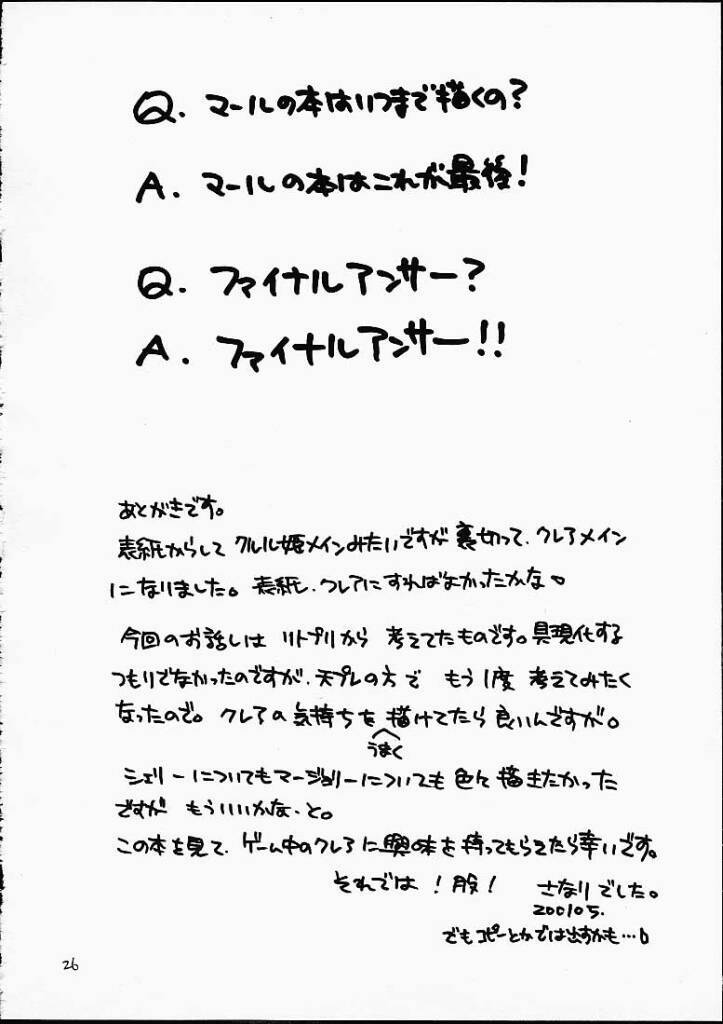 Q. マールの本はいつまで描くの?
A. マールの本はこれが最後!
Q. ファイナルアンサー?
A. ファイナルアンサー!!
あとがきです。
表紙からして クルル姫メインみたいですが裏切って、クレアメイン
になりました。表紙、クレアにすればよかったかな。
今回のお話しは リトプリから 考えてたものです。具現化する
つもりでなかったのですが、天プレの方で もう1度 考えてみたく
なったので。クレアの気持ちを描けてたら良いんですが。
うまく
シェリーについてもマージョリーについても色々描きたかった
ですが もういいかな、と。
この本を見て、ゲーム中のクレアに興味を持ってもらえたら幸いです。
それでは!股! さなりでした。
200105.
でもコピーとかでは出すかも…
26